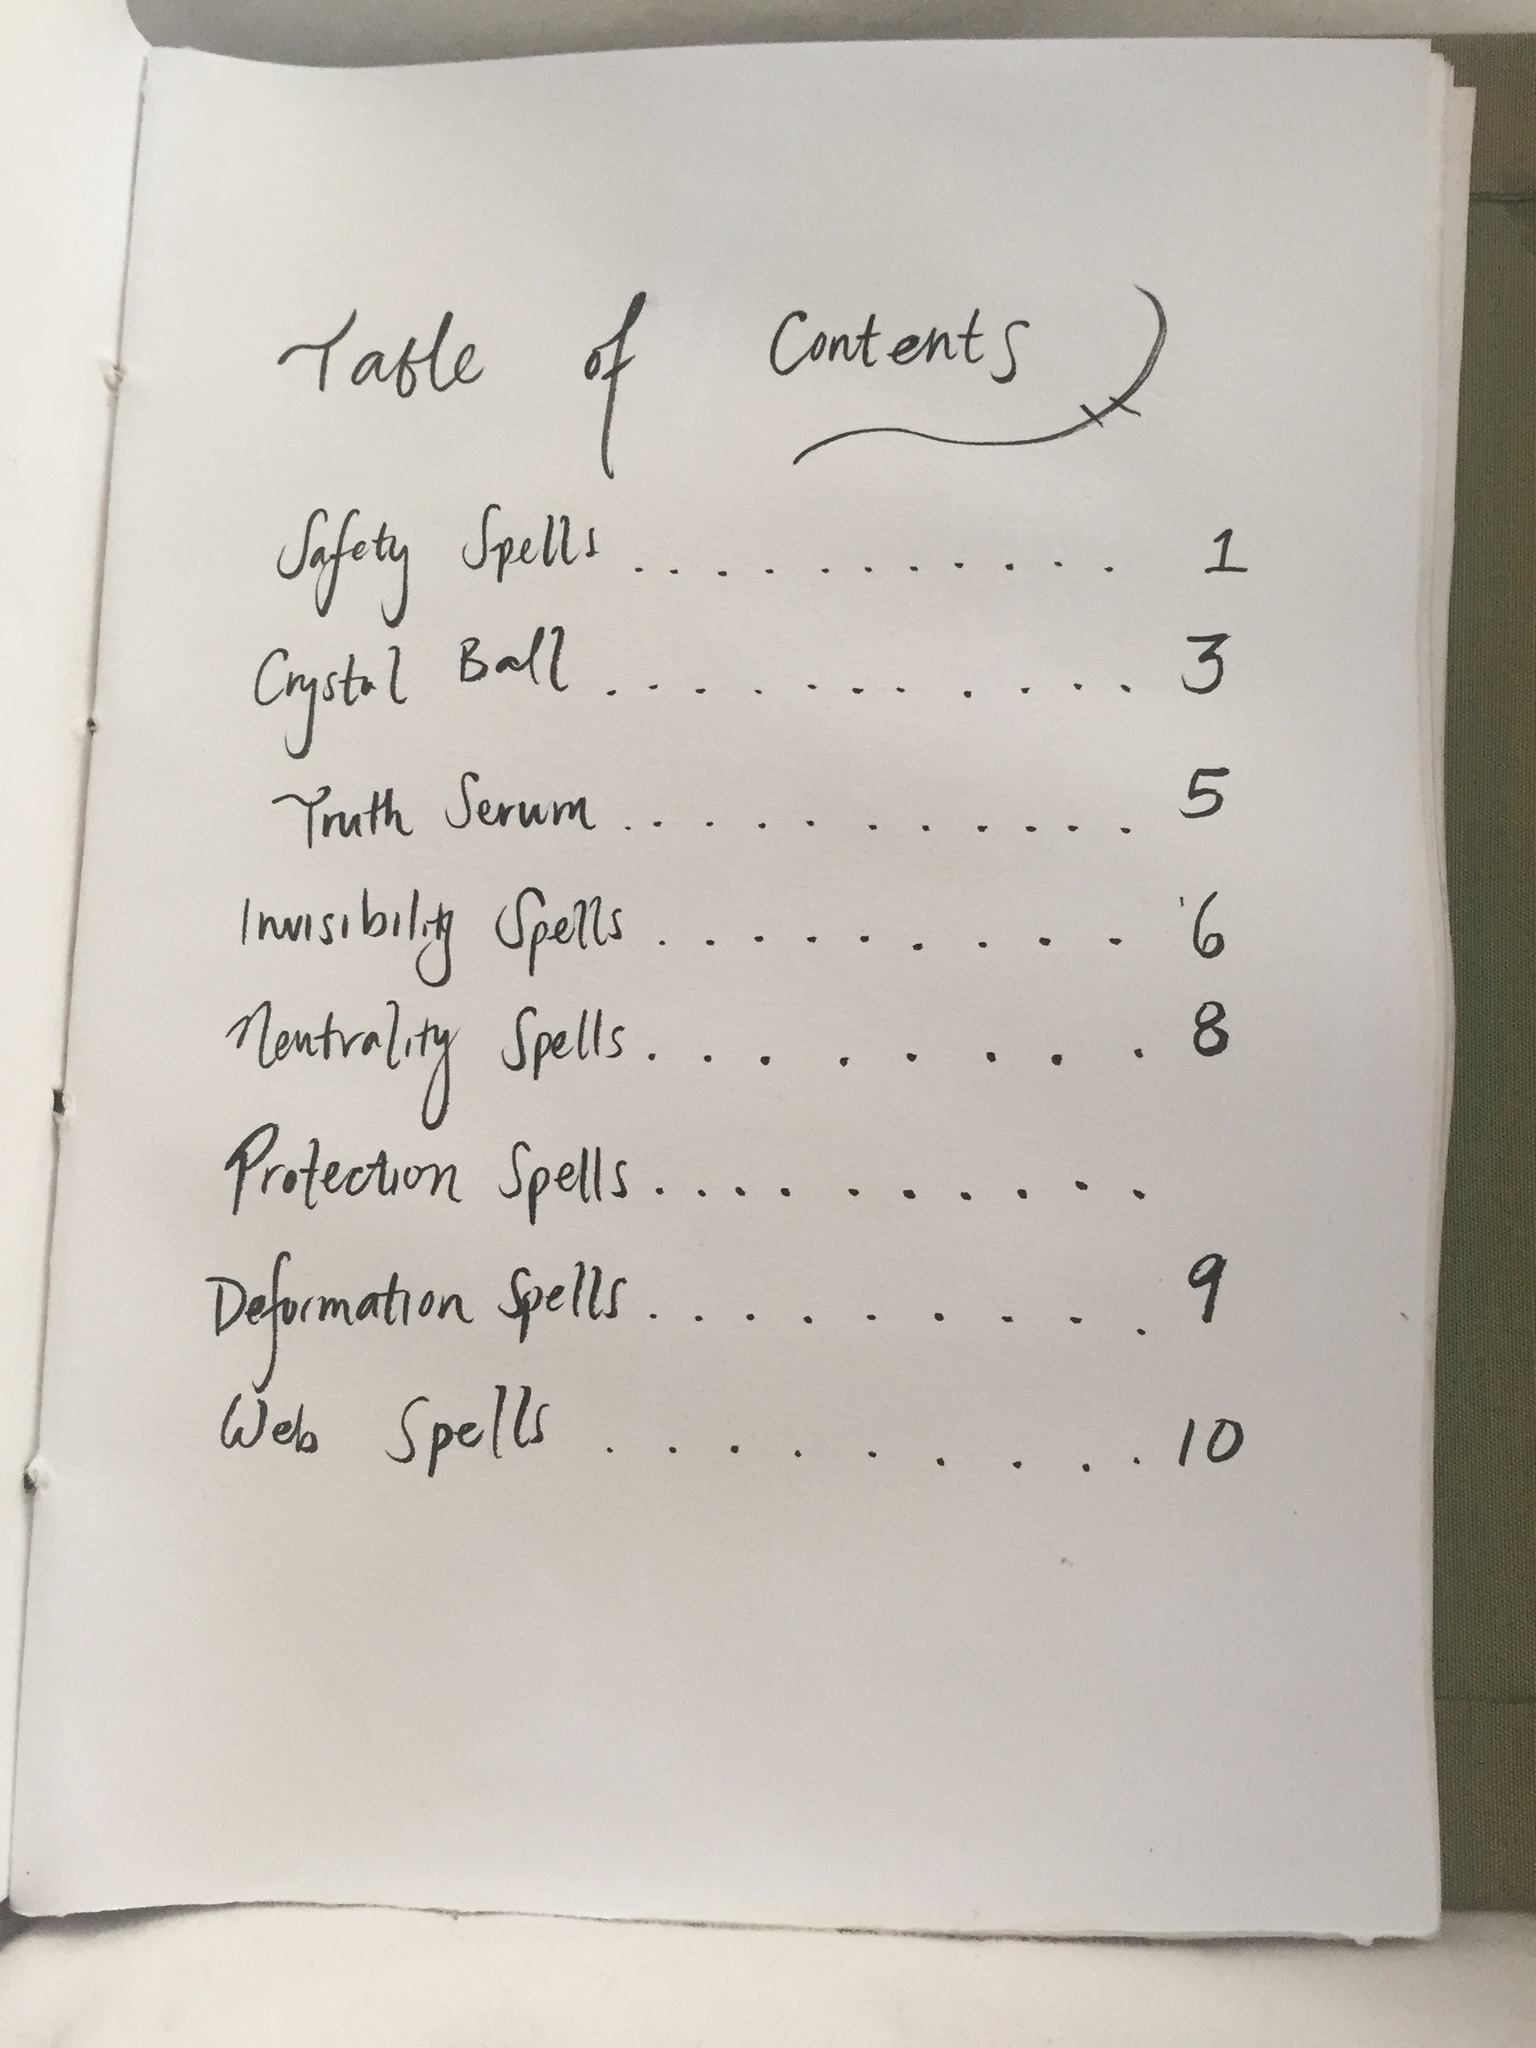 Table of Contents
Safety Spells ............ 1
Crystal Ball ............ 3
Truth Serum ............ 5
Invisibility Spells .......... 6
Neutrality Spells ........ 8
Protection Spells ..........
Deformation Spells ......... 9
Web Spells ......... 10